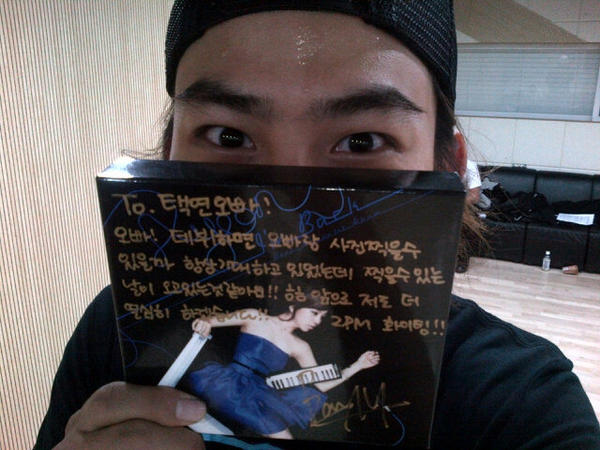 To. 택연오빠!
오빠! 데뷔하면 오빠랑 사진찍을수
있을까 항상기대하고 있었는데 찍을수 있는
날이 오고있는것같아요!! 하하 앞으로 저도 더
열심히 하겠습니다!! 2PM 화이팅!!
Baek